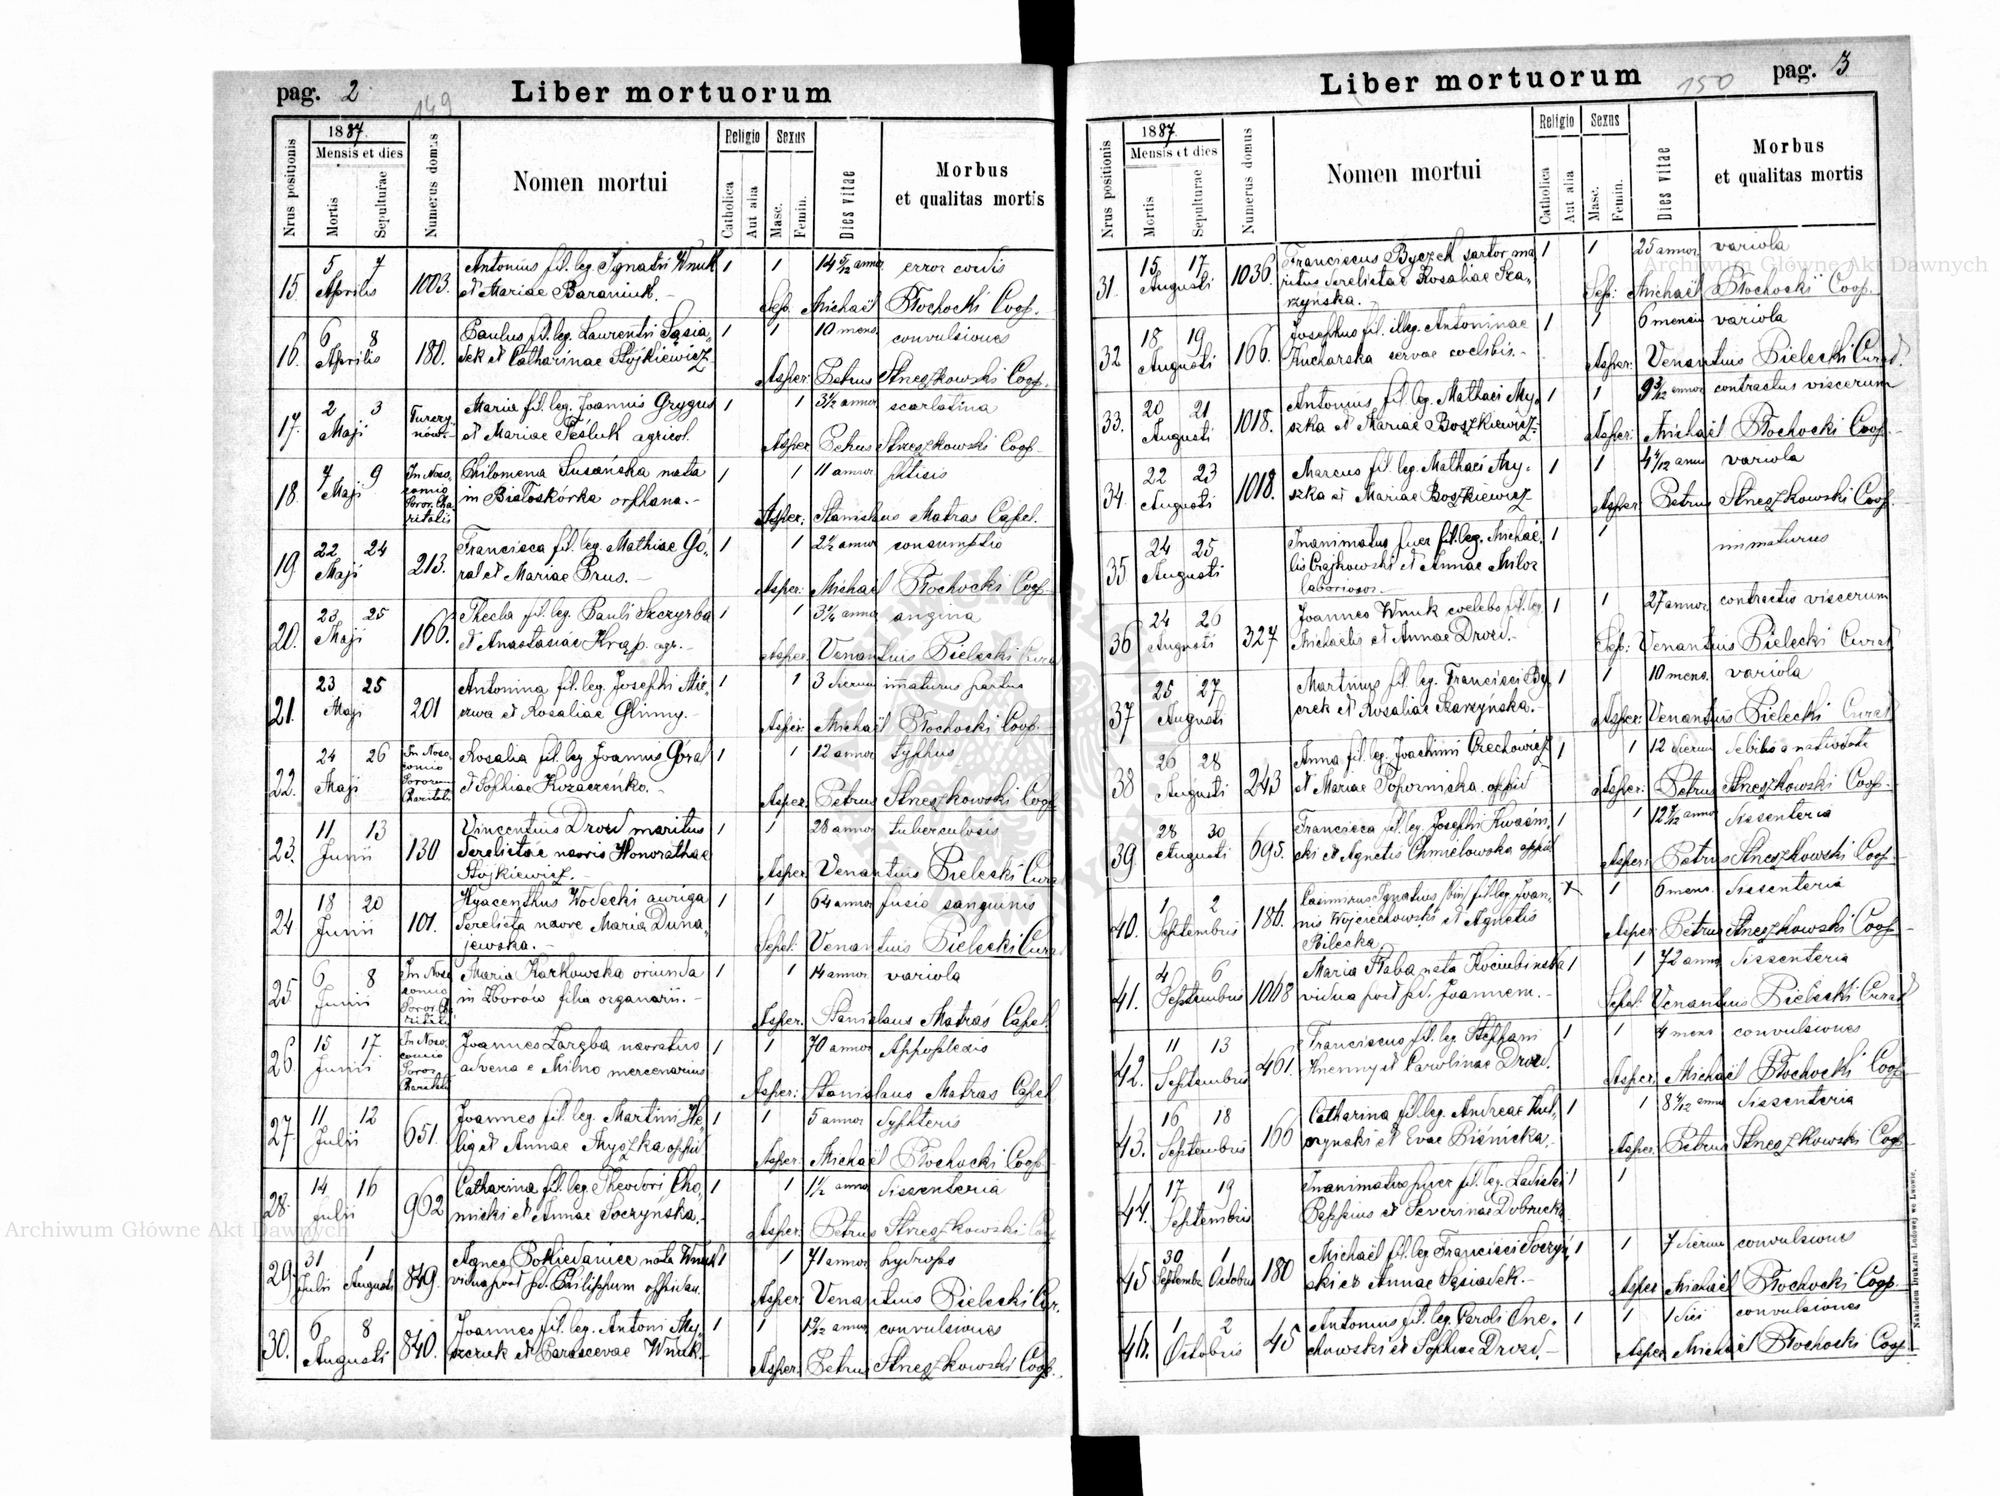 pag. 2
149
Liber mortuorum
Nrus positionis
1887.
Mensis et dies
Mortis
Sepulturae
Numerus domus
Nomen mortui
Religio
Catholica
Aut alia
Sexus
Masc.
Femin.
Dies vitae
Morbus
et qualitas mortis
5 7 Antonius fil. leg. Ignatii Wnuk 1 1 14 5/12 annor error cordis
15. Aprilis 1003. et Mariae Baraniuk.— Sep. Michaël Płochocki Coop.
6 8 Paulus fil. leg. Laurentii Sąsia- 1 1 10 mens. convulsiones
16. Aprilis 180. dek et Catharinae Stojkiewicz Asper: Petrus Streszkowski Coop.
2 3 Maria fil. leg. Joannis Grygus 1 1 3½ annor scarlatina
17. Maji et Mariae Teśluk agricol. Asper Petrus Streszkowski Coop.
7 9 In Noso- Philomena nata 1 1 11 annor phtisis
18. Maji comio Soror. Cha- in Białoskórka orphana.—
ritatis Asper: Stanislaus Matras Capel.
22 24 Francisca fil. leg. Mathiae Gó- 1 1 2½ annor consumptio
19. Maji 213. ral et Mariae Prus.— Asper: Michaël Płochocki Coop.
23 25 Thecla fil. leg. Pauli Szczyrba 1 1 3¼ annor angina
20. Maji 166. et Anastasiae Krap. agr.— Asper. Venantius Pielecki Curat
23 25 Antonina fil. leg. Josephi Mie- 1 1 3 dierum immaturus partus
21. Maji 201 et Rosaliae Glinny.— Asper: Michaël Płochocki Coop.
24 26 In Noso- Rosalia fil. leg. Joannis Góral 1 1 12 annor typhus
22. Maji comio Sororum et Sophiae Kozaczeńko.—
Charitatis Asper: Petrus Streszkowski Coop
11 13 Vincentius Drozd maritus 1 1 28 annor tuberculosis
23. Junii 130 derelictae uxoris Honorathae
Stojkiewicz.— Asper Venantius Pielecki Curat
18 20 Hyacenthus Wodecki auriga 1 1 64 annor fusio sanguinis
24 Junii 101. derelicta uxore Maria Duna-
jewska.— Sepel: Venantius Pielecki Curat
6 8 In Noso- Maria Karkowska oriunda 1 1 14 annor variola
25 Junii comio in Zborów filia organarii.—
Soror. Cha-
ritatis Asper. Stanislaus Matras Capel.
15 17 In Noso- Joannes Zaręba uxoratus 1 1 70 annor Appoplexis
26. Junii comio advena e Milno mercenarius
Soror.
Charitatis Asper: Stanislaus Matras Capel
11 12 Joannes fil. leg. Martini He- 1 1 5 annor dyphteris
27. Julii 651. lig et Annae Myszka oppid Asper: Michaël Płochocki Coop
14 16 Catharina fil. leg. Theodori Cho- 1 1 1½ annor dissenteria
28. Julii 962 micki et Annae Soczyńska.— Asper: Petrus Streszkowski Coop
31 1 Agnes nata Wnuk 1 1 71 annor hydrops
29. Julii Augusti 849. vidua post pd. Philippum oppidan. Asper: Venantius Pielecki Cur.
6 8 Joannes fil. leg. Antoni My- 1 1 annor convulsiones
30. Augusti 840. szczuk et Parascevae Wnuk.— Asper: Petrus Streszkowski Coop.
Liber mortuorum
150
pag. 3
Nrus positionis
1887.
Mensis et dies
Mortis
Sepulturae
Numerus domus
Nomen mortui
Religio
Catholica
Aut alia
Sexus
Masc.
Femin.
Dies vitae
Morbus
et qualitas mortis
15 17 Franciscus Byczek sartor ma- 1 1 25 annor variola
31. Augusti 1036. ritus derelictae Rosaliae Ska-
rzyńska. Sep: Michaël Płochocki Coop.
18 19 Josephus fil. illeg. Antoninae 1 1 6 mensium variola
32 Augusti 166. Kucharska servae coelibis.— Asper: Venantius Pielecki Curat.
20 21 Antonius fil. leg. Mathaei My- 1 1 9 3/12 annor contractus viscerum
33. Augusti 1018. szka et Mariae Boszkiewicz.— Asper: Michaël Płochocki Coop.
22 23 Marcus fil. leg. Mathaei My- 1 1 4 4/12 annor variola
34. Augusti 1018. szka et Mariae Boszkiewicz Asper Petrus Streszkowski Coop.
24 25 Inanimatus puer fil. leg. Michaë- 1 1 immaturus
35. Augusti lis Czajkowski et Annae
laborioso.—
24 26 Joannes Wnuk coelebs fil. leg. 1 1 27 annor contractio viscerum
36 Augusti 327 Michaelis et Annae Drozd.— Sep: Venantius Pielecki Curat
25 27 Martinus fil. leg. Francisci By- 1 1 10 mens. variola
37 Augusti czek et Rosaliae Skarzyńska.— Asper: Venantius Pielecki Curat
26 28 Anna fil. leg. Joachimi Orechowicz 1 1 12 dierum debilis a nativitate
38 Augusti 243 et Mariae Topornicka. oppid Asper: Petrus Streszkowski Coop.
28 30 Francisca fil. leg. Josephi Kwaśni- 1 1 annor dissenteria
39 Augusti 695. cki et Agnetis Chmielowska oppid Asper: Petrus Streszkowski Coop.
1 2 Casimirus Ignatius /bin/ fil. leg. Joan- 1 1 6 mens. dissenteria
40. Septembris 186. nis Wojciechowski et Agnetis
Bilecka. Asper Petrus Streszkowski Coop.
4 6 Maria Słaba nata Kociubińska 1 1 72 annor dissenteria
41. Septembris 1068 vidua post pd. Joannem.— Sepel: Venantius Pielecki Curat
11 13 Franciscus fil. leg. Stephani 1 1 4 mens convulsiones
42. Septembris 461. Knenny et Carolinae Drozd. Asper: Michaël Płochocki Coop
16 18 Catharina fil. leg. Andreae Kul- 1 1 8 annor dissenteria
43. Septembris 166 czyński et Evae Bieńicka.— Asper: Petrus Streszkowski Coop.
17 19 Inanimatus puer fil. leg. Ladislai 1 1
44. Septembris Peppius et Severinae Dobrucka
30 1 Michaël fil. leg. Francisci Soczyń- 1 1 7 dierum convulsiones
45 Septembr Octobris 180 ski et Annae Sąsiadek.— Asper Michaël Płochocki Coop.
1 2 Antonius fil. leg. Caroli One- 1 1 1 diei convulsiones
46. Octobris 45 chowski et Sophiae Drozd.— Asper Michaël Płochocki Coop
Nakładem Drukarni Ludowej we Lwowie.
Archiwum Główne Akt Dawnych
Archiwum Główne Akt Dawnych